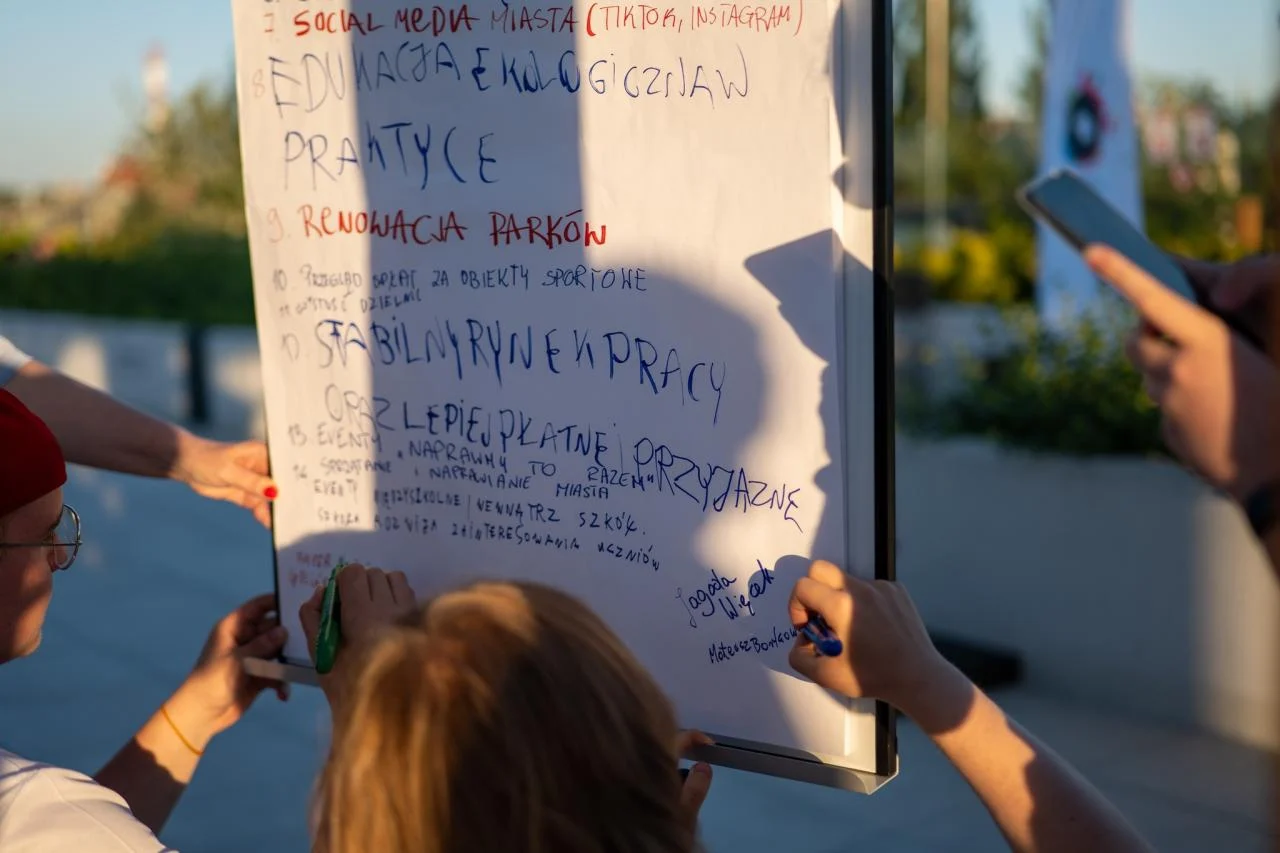 7. SOCIAL MEDIA MIASTA (TIKTOK, INSTAGRAM)
8. EDUKACJA EKOLOGICZNA W
PRAKTYCE
9. RENOWACJA PARKÓW
10. PRZEGLĄD OPŁAT ZA OBIEKTY SPORTOWE
11. DZIELNIC
STABILNY RYNEK PRACY
ORAZ LEPIEJ PŁATNE i PRZYJAZNE
13. EVENTY "NAPRAWMY TO RAZEM"
14. SPRZĄTANIE i NAPRAWIANIE MIASTA
EVENTY MIĘDZYSZKOLNE / WEWNĄTRZ SZKÓŁ.
SZKOŁA ROZWIJA ZAINTERESOWANIA UCZNIÓW
Jagoda
Więcek
Mateusz